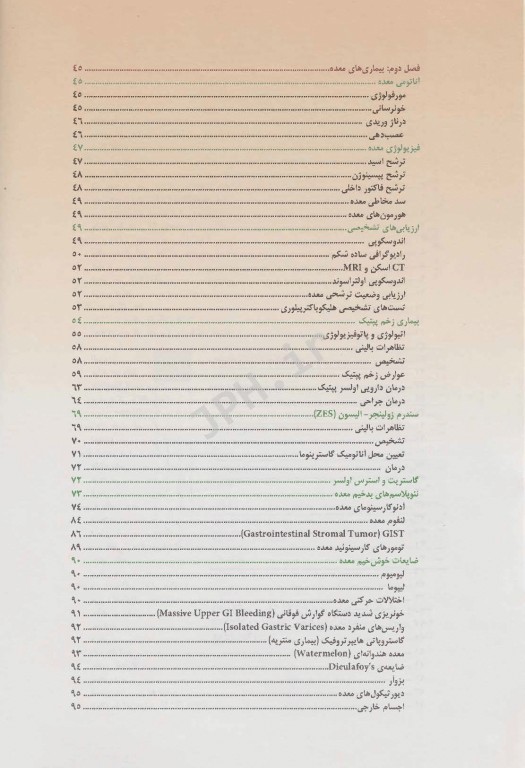 فصل دوم: بیماری‌های معده ........ ٤٥
آناتومی معده ........ ٤٥
مورفولوژی ........ ٤٥
خونرسانی ........ ٤٥
درناژ وریدی ........ ٤٦
عصب‌دهی ........ ٤٦
فیزیولوژی معده ........ ٤٧
ترشح اسید ........ ٤٧
ترشح پپسینوژن ........ ٤٨
ترشح فاکتور داخلی ........ ٤٨
سد مخاطی معده ........ ٤٩
هورمون‌های معده ........ ٤٩
ارزیابی‌های تشخیصی ........ ٤٩
اندوسکوپی ........ ٤٩
رادیوگرافی ساده شکم ........ ٥٠
CT اسکن و MRI ........ ٥٢
اندوسکوپی اولتراسوند ........ ٥٢
ارزیابی وضعیت ترشحی معده ........ ٥٢
تست‌های تشخیصی هلیکوباکترپیلوری ........ ٥٣
بیماری زخم پپتیک ........ ٥٤
اتیولوژی و پاتوفیزیولوژی ........ ٥٥
تظاهرات بالینی ........ ٥٨
تشخیص ........ ٥٨
عوارض زخم پپتیک ........ ٥٩
درمان دارویی اولسر پپتیک ........ ٦٣
درمان جراحی ........ ٦٤
سندرم زولینجر- الیسون (ZES) ........ ٦٩
تظاهرات بالینی ........ ٦٩
تشخیص ........ ٧٠
تعیین محل آناتومیک گاسترینوما ........ ٧١
درمان ........ ٧٢
گاستریت و استرس اولسر ........ ٧٢
نئوپلاسم‌های بدخیم معده ........ ٧٣
آدنوکارسینومای معده ........ ٧٤
لنفوم معده ........ ٨٤
GIST (Gastrointestinal Stromal Tumor) ........ ٨٦
تومورهای کارسینوئید معده ........ ٨٩
ضایعات خوش‌خیم معده ........ ٩٠
لیومیوم ........ ٩٠
لیپوما ........ ٩٠
اختلالات حرکتی معده ........ ٩٠
خونریزی شدید دستگاه گوارش فوقانی (Massive Upper GI Bleeding) ........ ٩١
واریس‌های منفرد معده (Isolated Gastric Varices) ........ ٩٢
گاستروپاتی هایپرتروفیک (بیماری منتریه) ........ ٩٢
معده هندوانه‌ای (Watermelon) ........ ٩٣
ضایعه‌ی Dieulafoy's ........ ٩٤
بزوار ........ ٩٤
دیورتیکول‌های معده ........ ٩٥
اجسام خارجی ........ ٩٥
JPH.ir